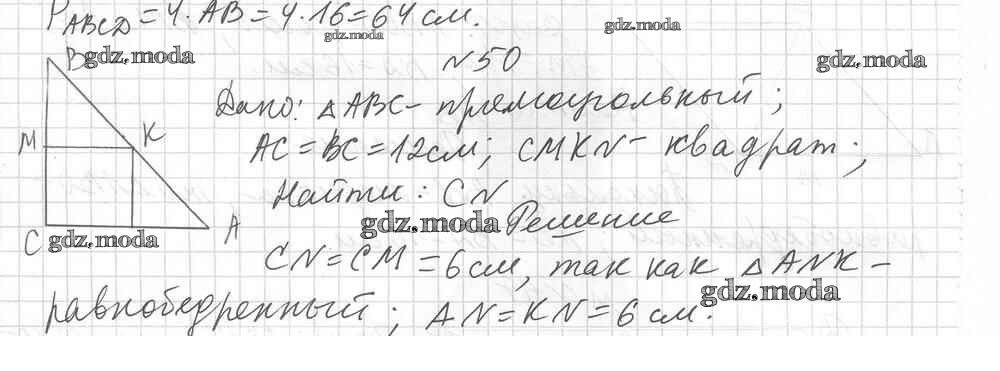 P ABCD = 4·AB = 4·16 = 64 см.
gdz.moda
gdz.moda
B gdz.moda
№50
gdz.moda
Дано: △ABC - прямоугольный;
M K
AC = BC = 12 см; CMKN - квадрат;
Найти: CN
gdz.moda Решение
C gdz.moda A
CN = CM = 6 см, так как △ANK -
gdz.moda
равнобедренный; AN = KN = 6 см.